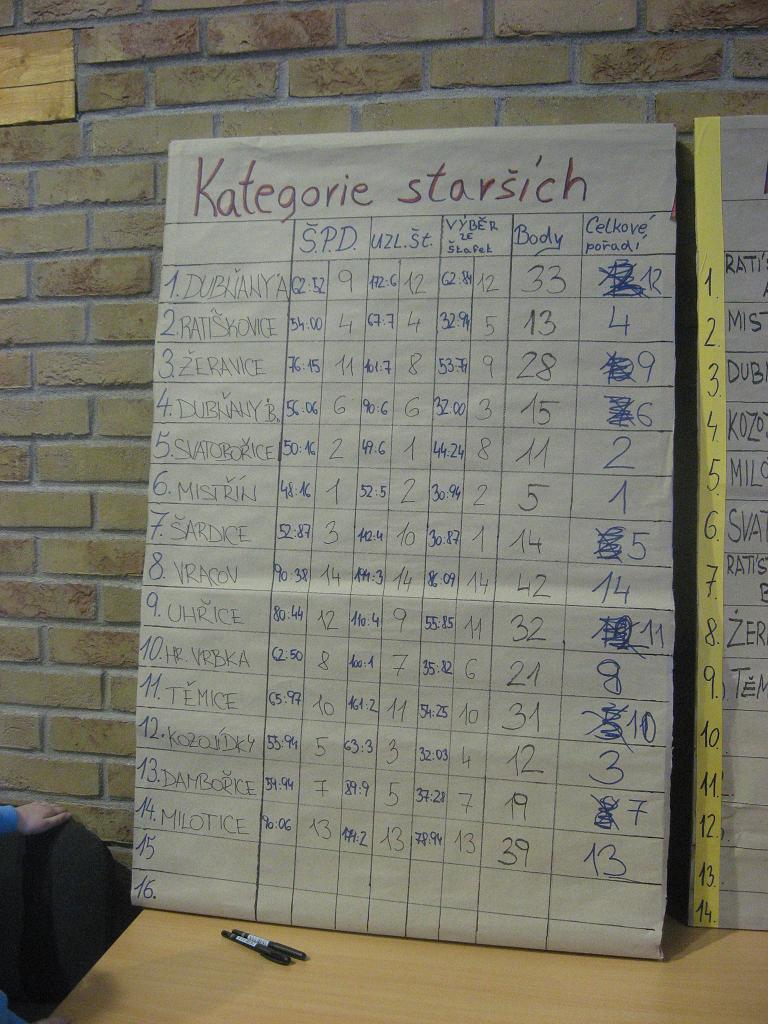 Kategorie starších
Š.P.D. UZL.ŠT. VÝBĚR ZE Štafet Body Celkové pořadí
1. DUBŇANY A 62:52 9 172:6 12 62:84 12 33 12
2. RATIŠKOVICE 54:00 4 67:7 4 32:94 5 13 4
3. ŽERAVICE 76:15 11 101:7 8 53:79 9 28 9
4. DUBŇANY B. 56:06 6 90:6 6 32:00 3 15 6
5. SVATOBOŘICE 50:16 2 49:6 1 44:24 8 11 2
6. MISTŘÍN 48:16 1 52:5 2 30:94 2 5 1
7. ŠARDICE 52:87 3 112:4 10 30:87 1 14 5
8. VRACOV 90:38 14 14 86:09 14 42 14
9. UHŘICE 80:44 12 110:4 9 55:85 11 32 11
10. HR. VRBKA 62:50 8 100:1 7 35:82 6 21 8
11. TĚMICE 65:97 10 161:2 11 54:25 10 31 10
12. KOZOJÍDKY 55:94 5 63:3 3 32:03 4 12 3
13. DAMBOŘICE 59:94 7 89:9 5 37:28 7 19 7
14. MILOTICE 90:06 13 174:2 13 78:94 13 39 13
15
16.
1. RATIŠ
A
2. MIST
3. DUBŇ
4. KOZOJ
5. MILO
6. SVAT
7. RATIŠ
B
8. ŽERA
9. TĚM
10.
11.
12.
13.
14.